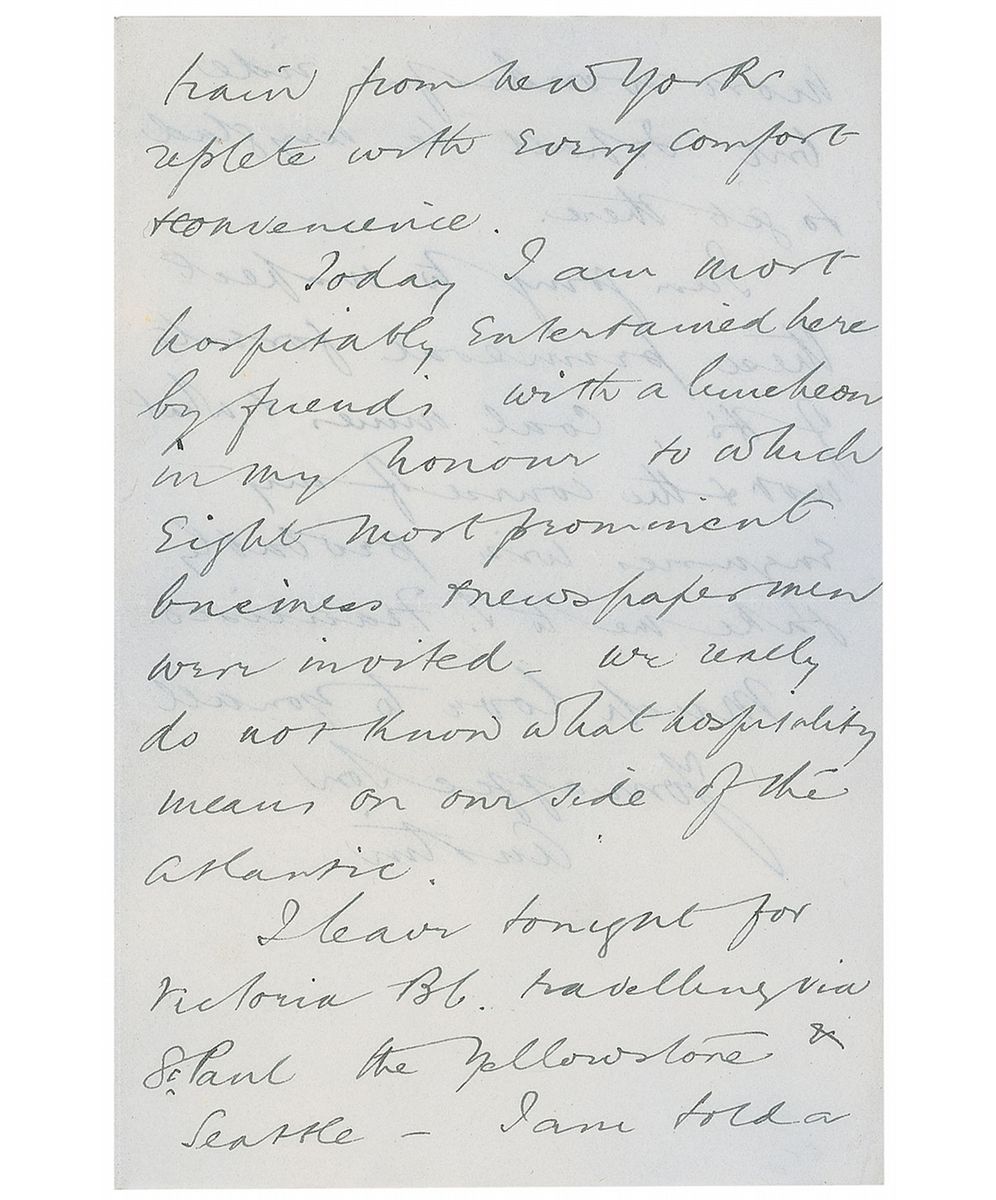 train from New York
replete with Every comfort
& convenience.
Today I am most
hospitably Entertained here
by friends with a luncheon
in my honour to which
Eight most prominent
business & newspaper men
were invited - we really
do not know what hospitality
means on our side of the
Atlantic.
I leave tonight for
Victoria BC. travelling via
St. Paul the Yellowstone &
Seattle - I am told a